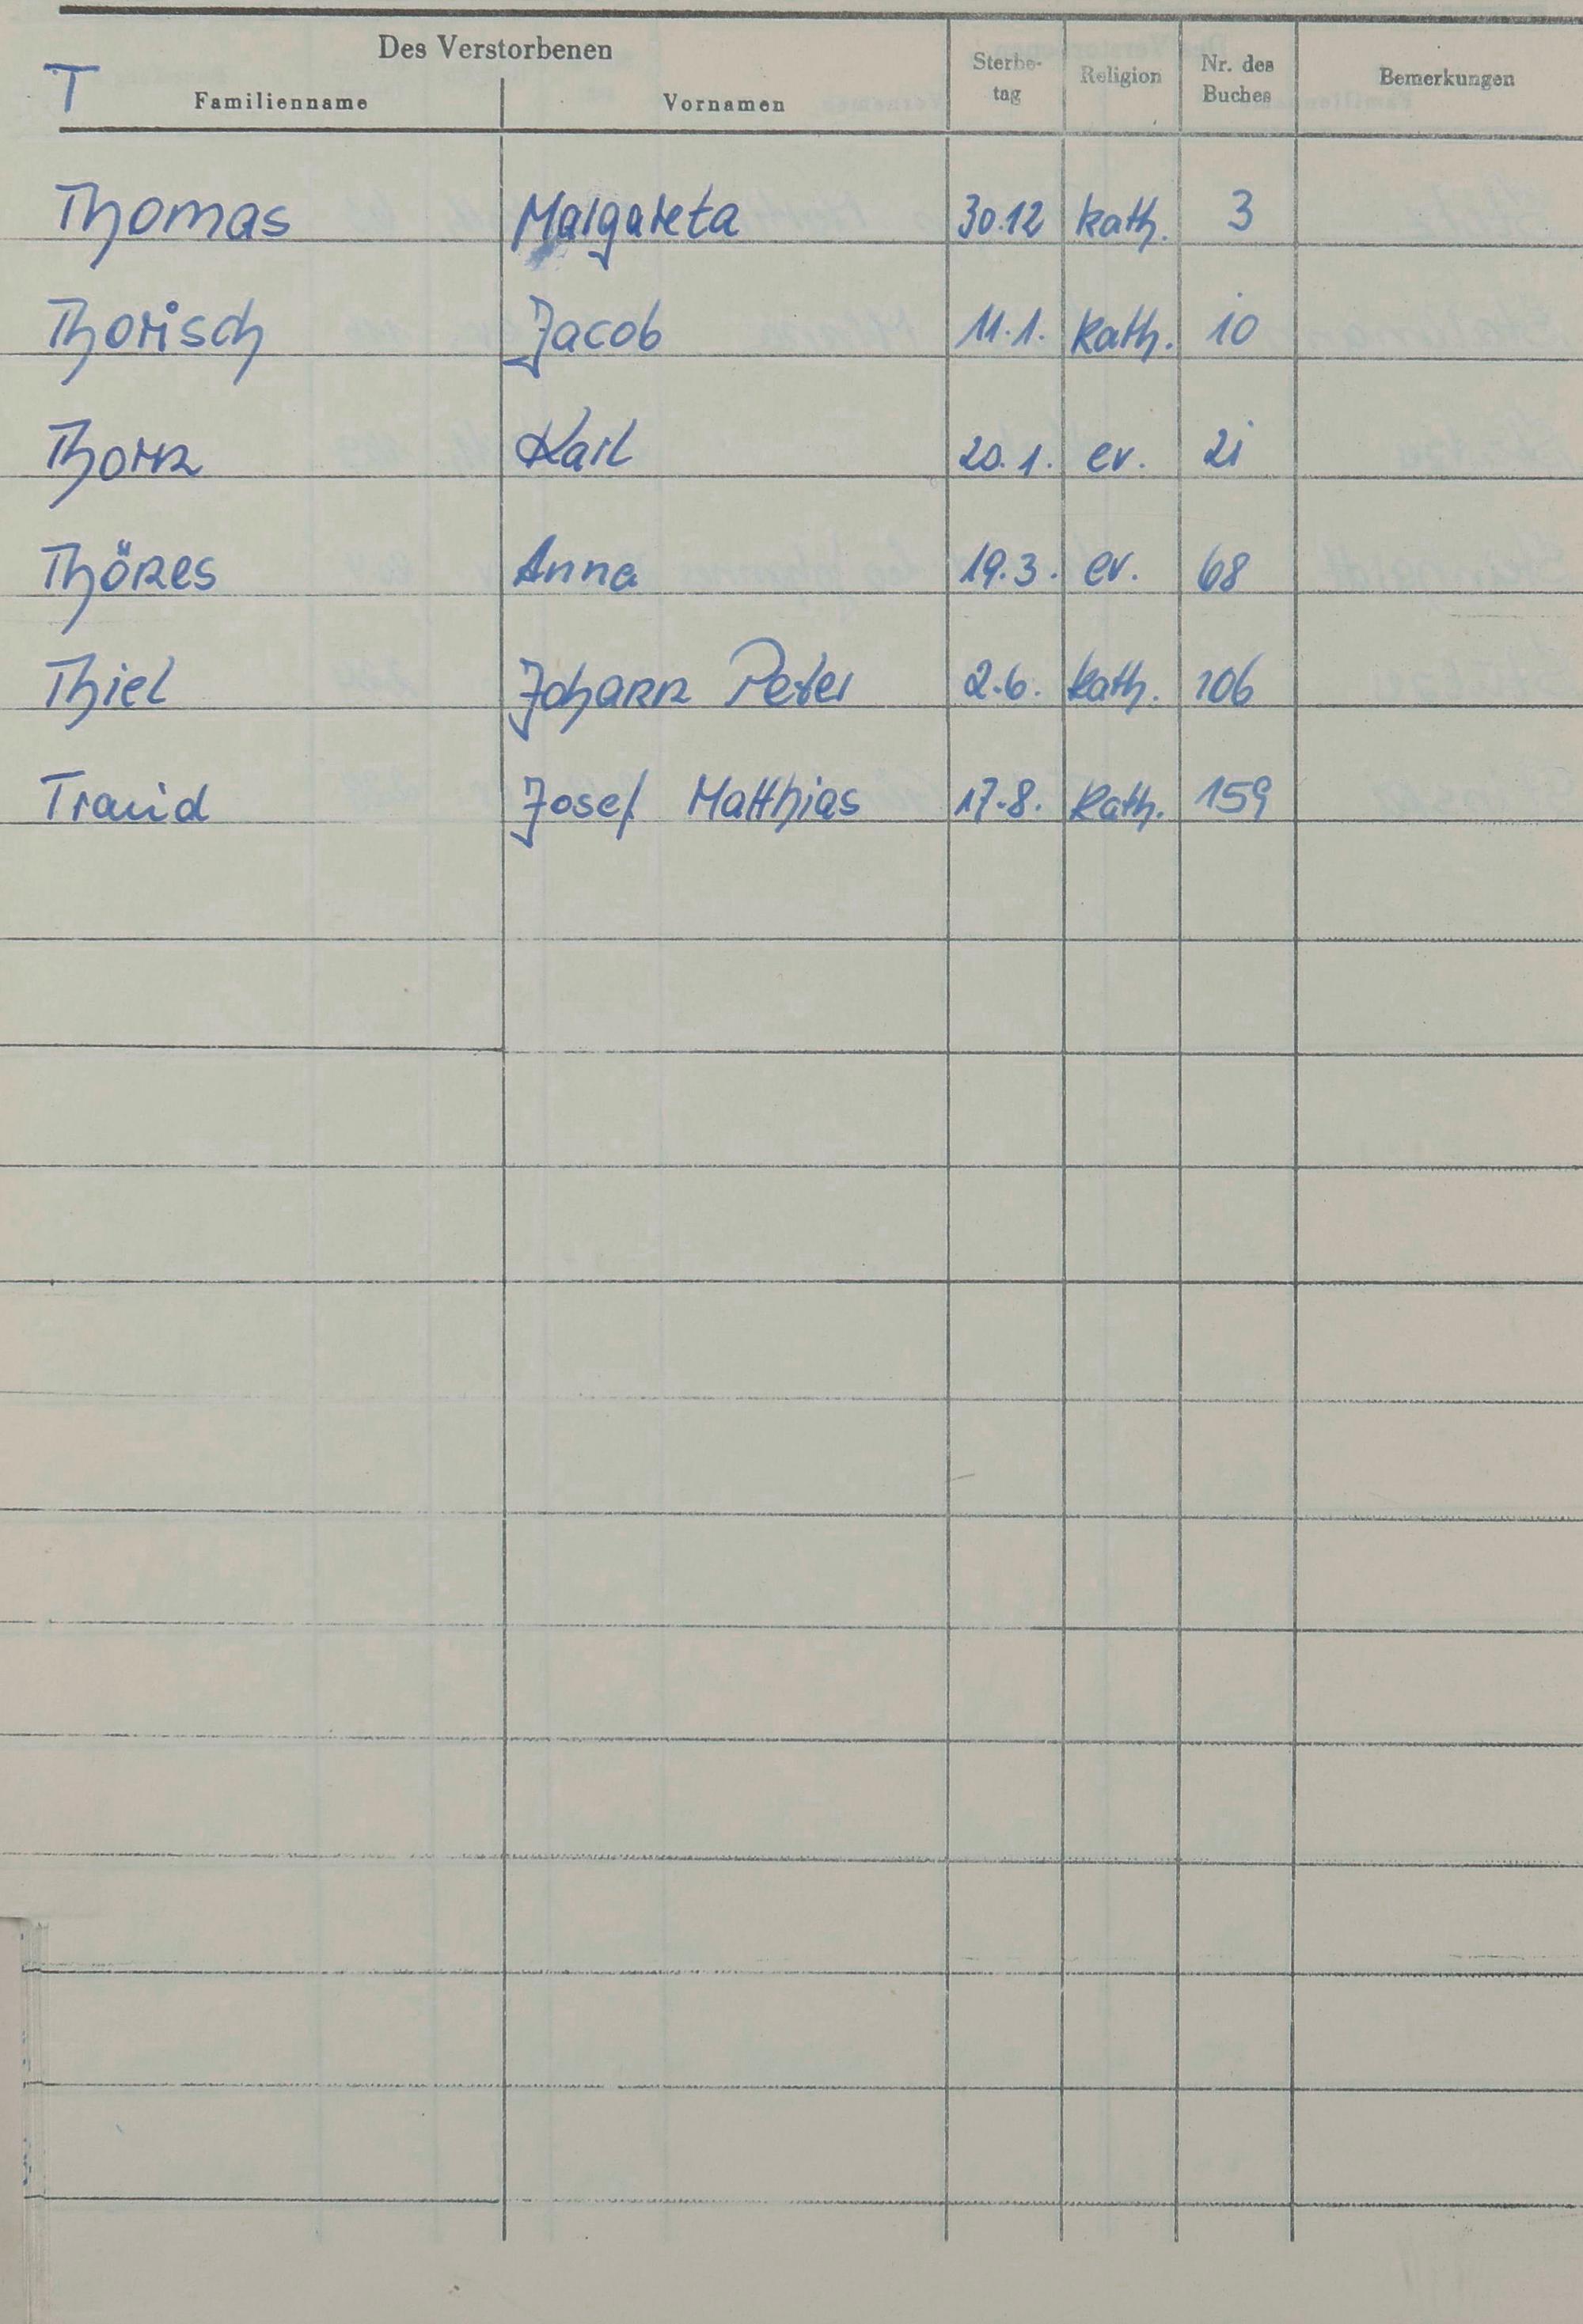 T
Des Verstorbenen
Familienname Vornamen Sterbe-tag Religion Nr. des Buches Bemerkungen
Thomas Margareta 30.12 kath. 3
Thorisch Jacob 11.1. kath. 10
Thorn Karl 20.1. ev. 21
Thönes Anna 19.3. ev. 68
Thiel Johann Peter 2.6. kath. 106
Traud Josef Matthias 17.8. kath. 159